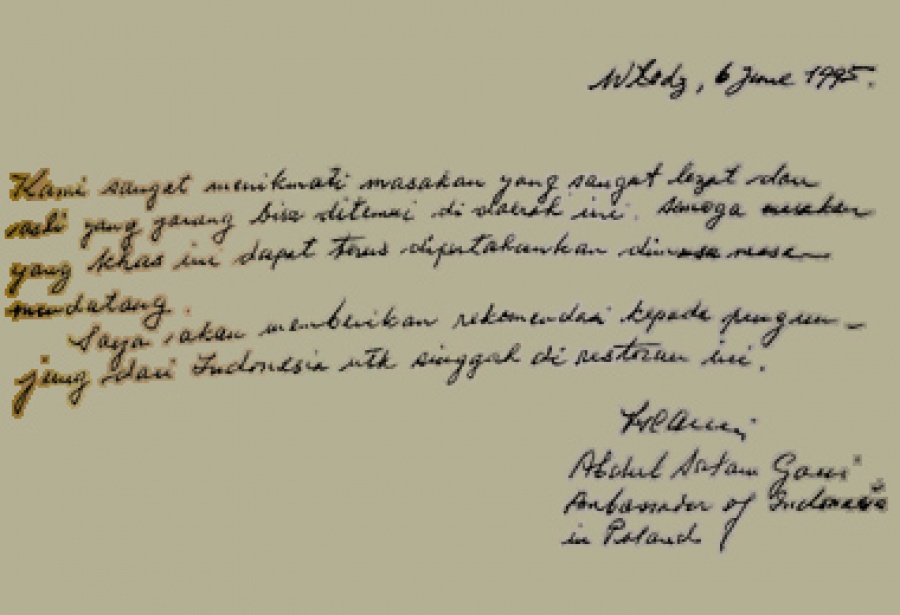 Włodz, 6 June 1995.
Kami sangat menikmati masakan yang sangat lezat dan
asli yang jarang bisa ditemui di daerah ini. Semoga masakan
yang khas ini dapat terus dipertahankan dimasa masa
mendatang.
Saya akan memberikan rekomendasi kepada pengun-
jung dari Indonesia utk singgah di restoran ini.
Abdul Salam Gani
Ambassador of Indonesia
in Poland